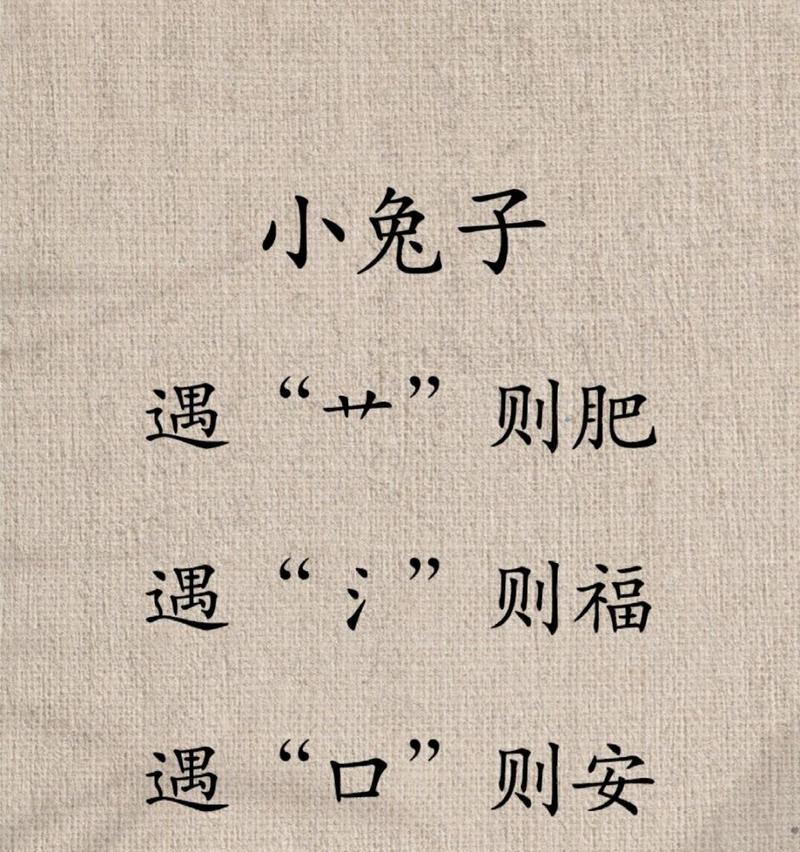 小兔子
遇“艹”则肥
遇“氵”则福
遇“口”则安